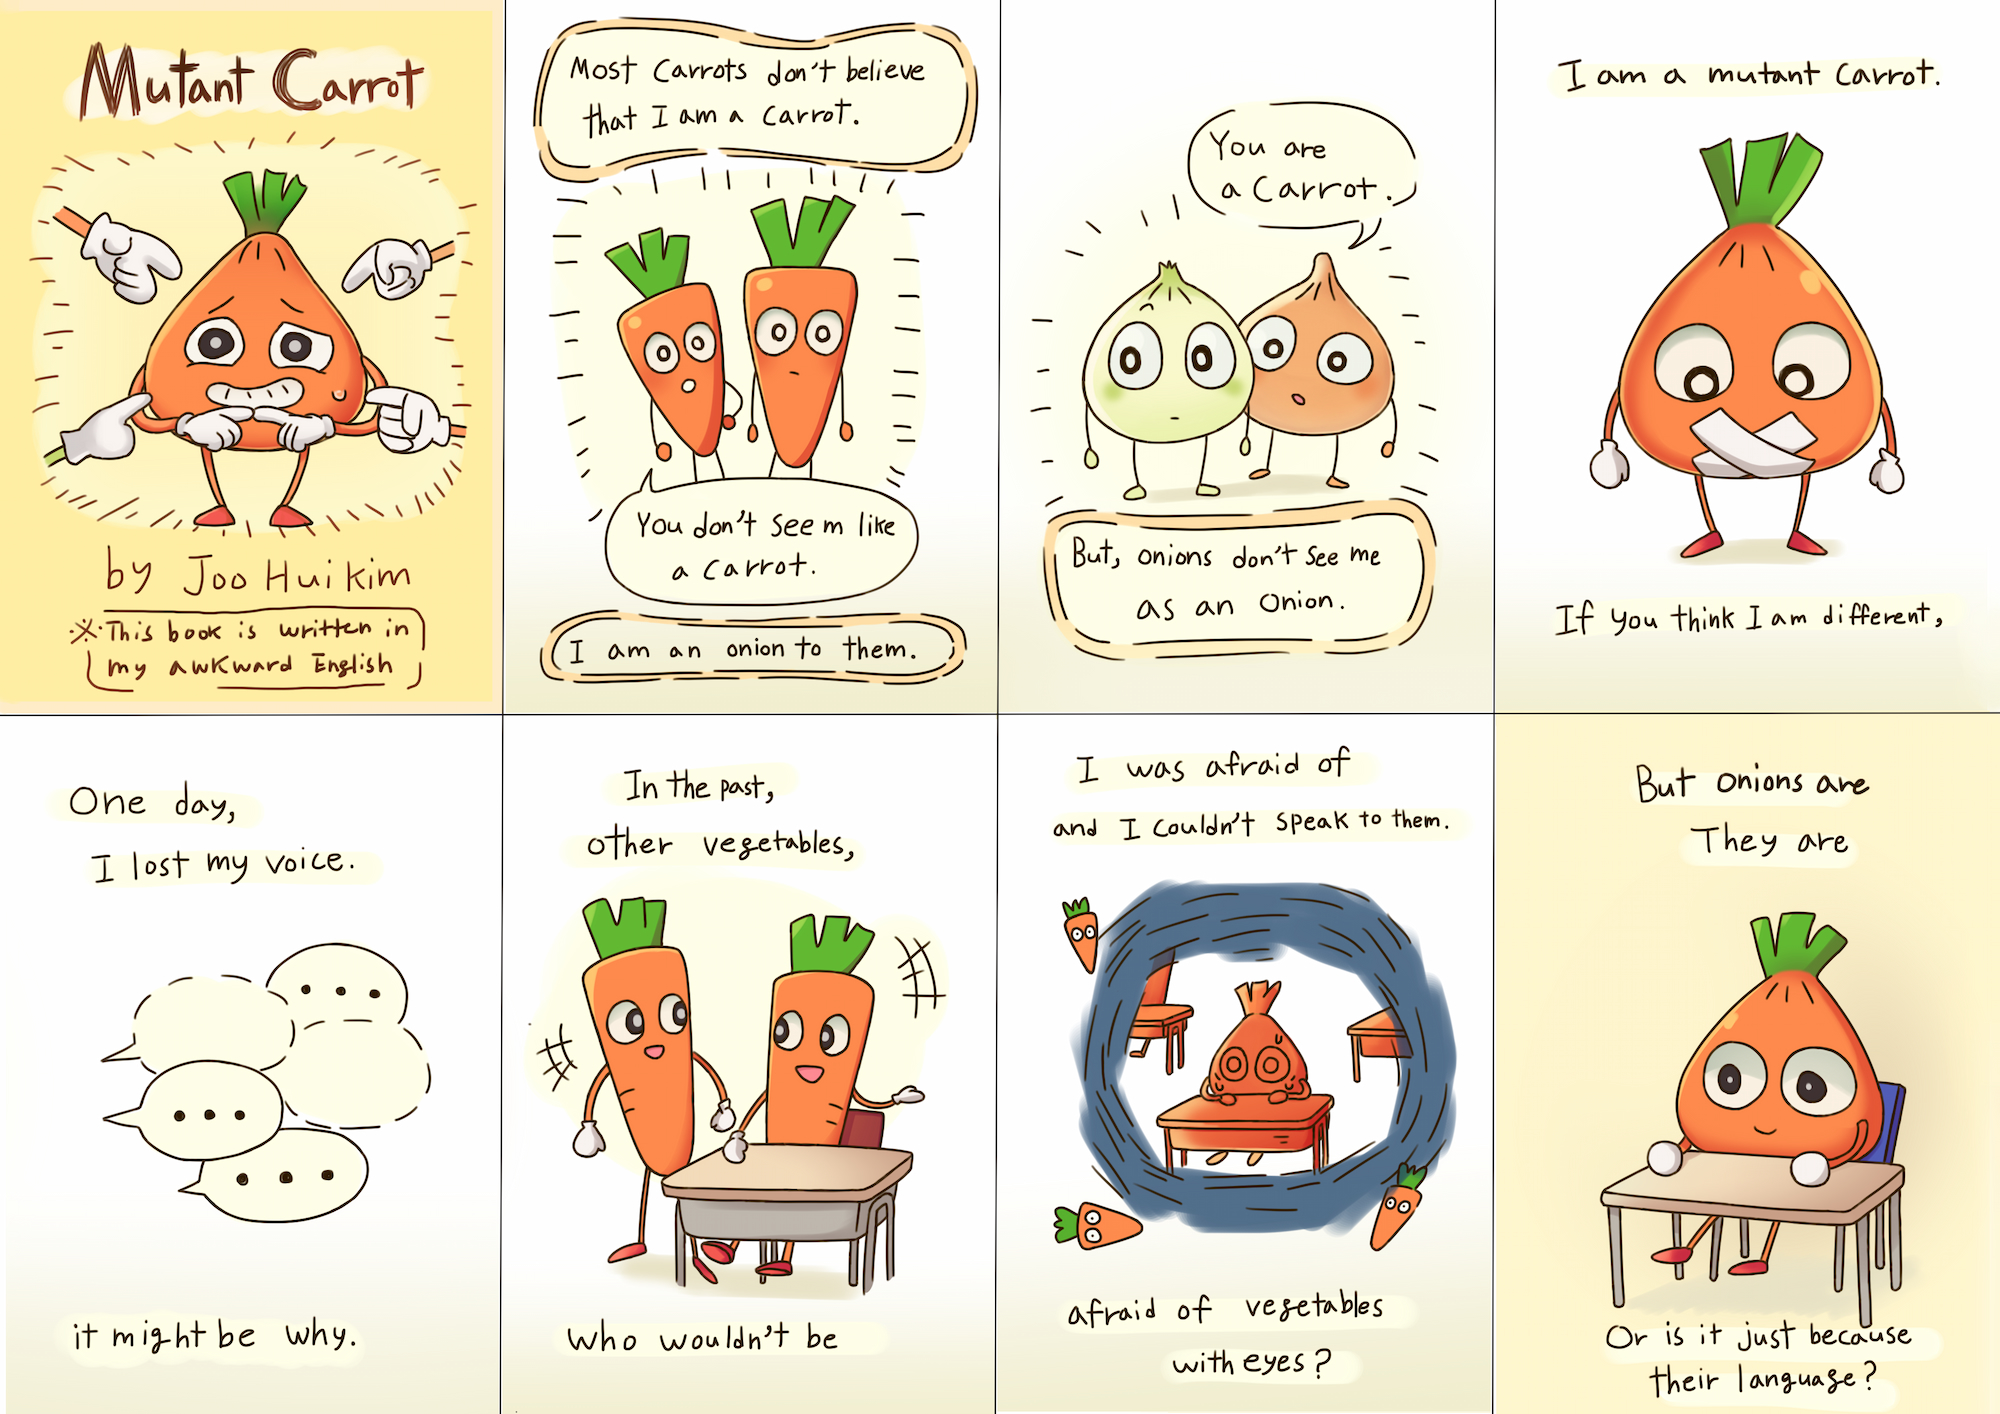 Mutant Carrot
by Joo Hui kim
※ This book is written in
my awkward English
Most Carrots don't believe
that I am a Carrot.
You don't seem like
a carrot.
I am an onion to them.
You are
a Carrot.
But, onions don't see me
as an Onion.
I am a mutant Carrot.
If you think I am different,
One day,
I lost my voice.
...
...
...
it might be why.
In the past,
other vegetables,
who wouldn't be
I was afraid of
and I couldn't speak to them.
afraid of vegetables
with eyes?
But onions are
They are
Or is it just because
their language?